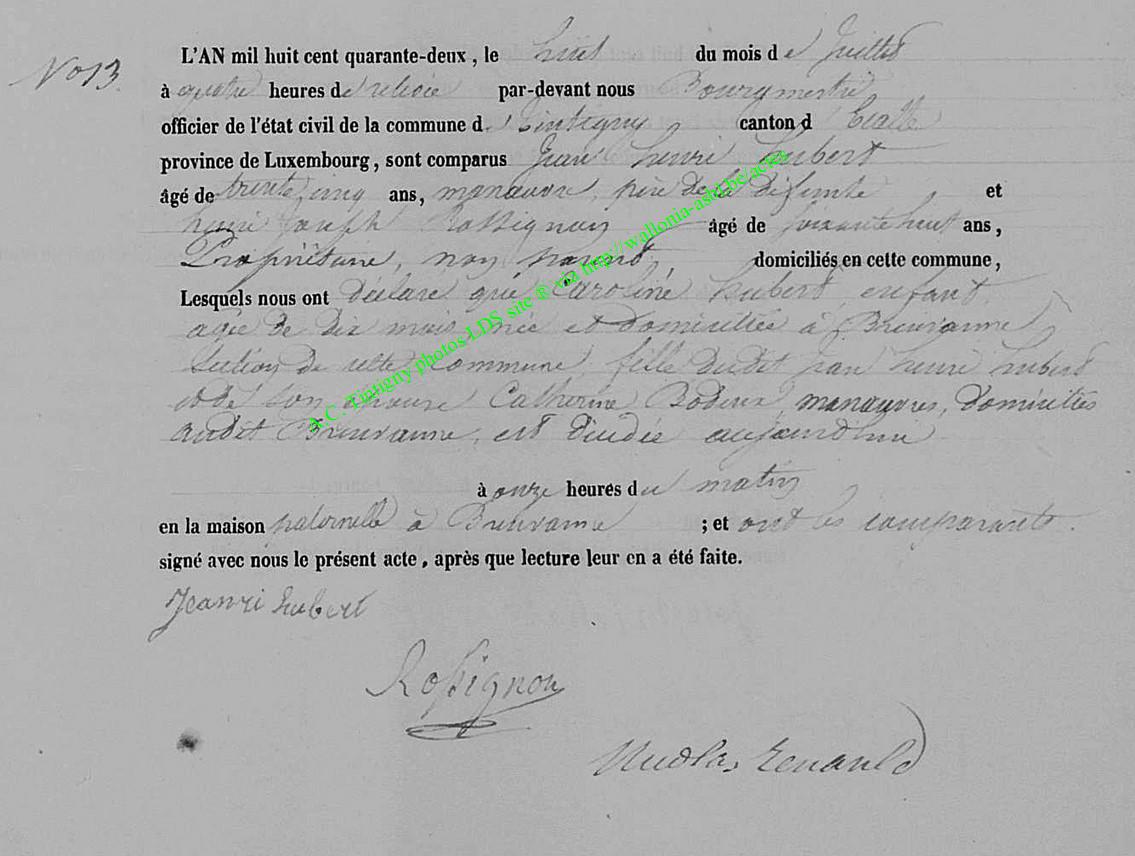 No 13.
L'AN mil huit cent quarante-deux, le huit du mois de Juillet
à quatre heures de relevée par-devant nous Bourgmestre
officier de l'état civil de la commune de Tintigny canton d' Etalle
province de Luxembourg, sont comparus Jean henri hubert
âgé de trente cinq ans, manœuvre, père de la défunte et
henri Joseph Rossignon âgé de soixante huit ans,
Propriétaire, non parent, domiciliés en cette commune,
Lesquels nous ont déclaré que Caroline hubert, enfant
agée de dix mois née et domiciliée à Breuvanne
section de cette commune fille dudit Jean henri hubert
et de son épouse Catherine Bodeux manœuvres, domiciliés
audit Breuvanne, est décédée aujourd'hui
à onze heures du matin
en la maison paternelle à Breuvanne ; et ont les comparants
signé avec nous le présent acte, après que lecture leur en a été faite.
Jeanri hubert
Rossignon
Nicolas Renauld
A.C. Tintigny photos-LDS site ® via http://wallonia-asbl.be/actes